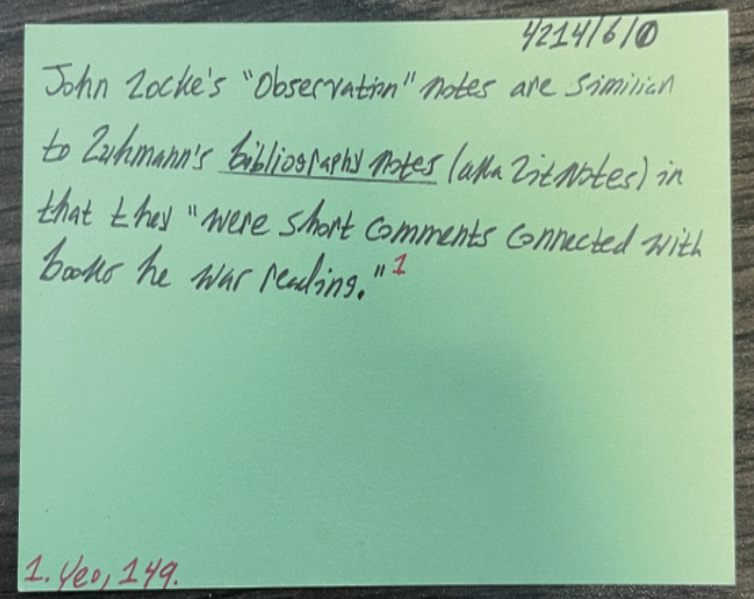 4214/6/0
John Locke's "Observation" notes are similiar
to Luhmann's bibliography notes (aka Lit Notes) in
that they "were short comments connected with
books he was reading."1
1. Yeo, 149.